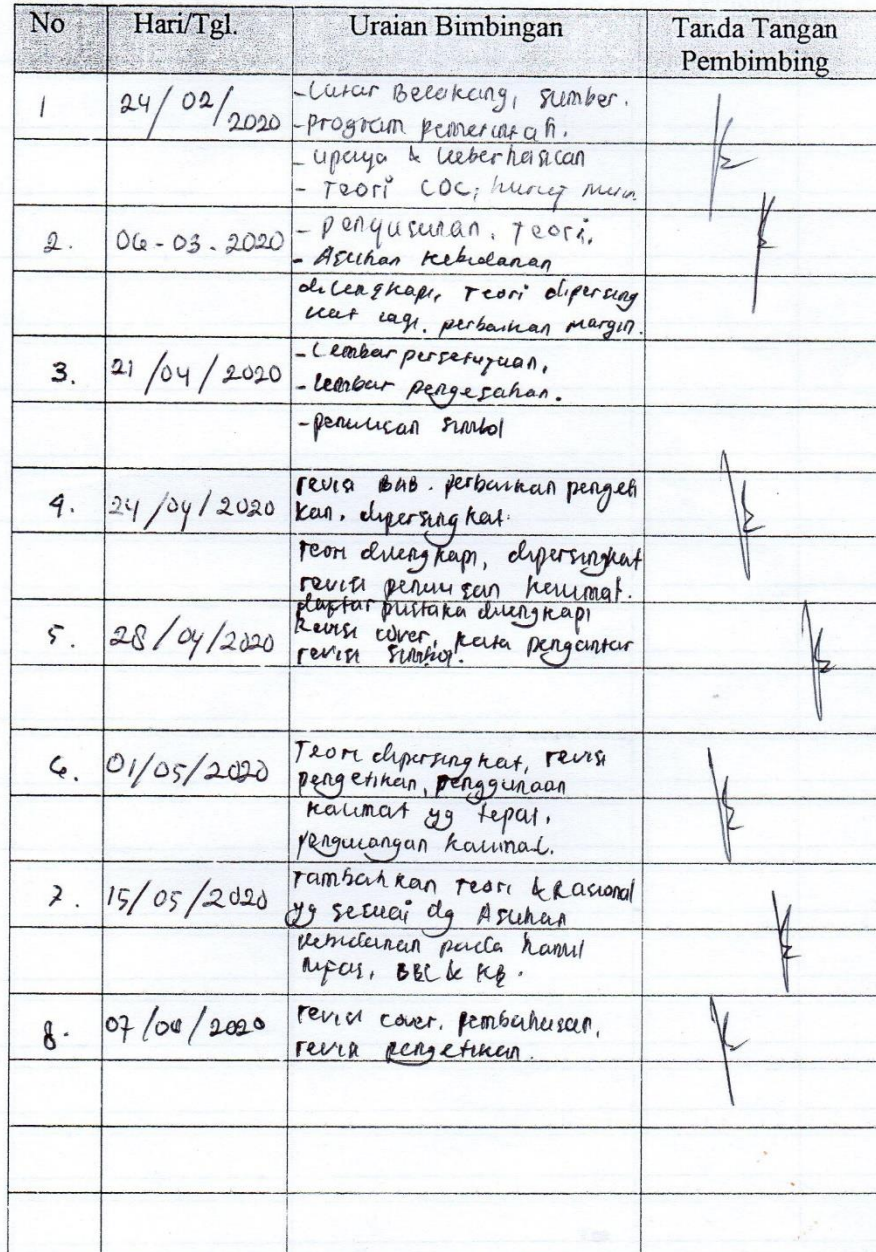 No Hari/Tgl. Uraian Bimbingan Tanda Tangan
Pembimbing
1 24/02/2020 - Latar Belakang, sumber.
- program pemerintah.
- upaya & keberhasilan
- Teori COC, huruf
2. 06-03-2020 - penyusunan, Teori,
- Asuhan kebidanan
dilengkapi, Teori dipersing
kat lagi. perbaikan margin.
3. 21/04/2020 - Lembar persetujuan,
- lembar pengesahan.
- penulisan simbol
4. 24/04/2020 revisi BAB. perbaikan pengeti
kan. dipersingkat.
teori dilengkapi, dipersingkat
revisi penulisan kalimat.
daftar pustaka dilengkapi
5. 28/04/2020 Revisi cover, kata pengantar
revisi simbol.
6. 01/05/2020 Teori dipersingkat, revisi
pengetikan, penggunaan
kalimat yg tepat,
pengulangan kalimat.
7. 15/05/2020 tambahkan teori & Rasional
yg sesuai dg Asuhan
kebidanan pada hamil
nifas, BBL & KB.
8. 07/ /2020 revisi cover, pembahasan,
revisi pengetikan.